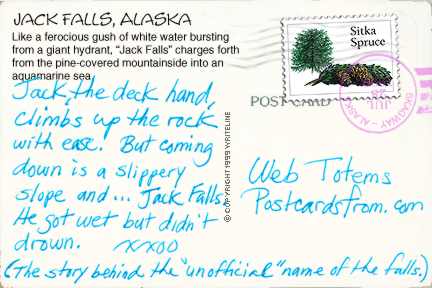 JACK FALLS, ALASKA
Like a ferocious gush of white water bursting
from a giant hydrant, "Jack Falls" charges forth
from the pine-covered mountainside into an
aquamarine sea.
Jack, the deck hand,
climbs up the rock
with ease. But coming
down is a slippery
slope and ... Jack Falls.
He got wet but didn't
drown. xxoo
(The story behind the "unofficial" name of the falls.)
© COPYRIGHT 1999 WRITELINE
Sitka
Spruce
POSTCARD
JUL
SKAGWAY - ALASKA
Web Totems
Postcardsfrom.com